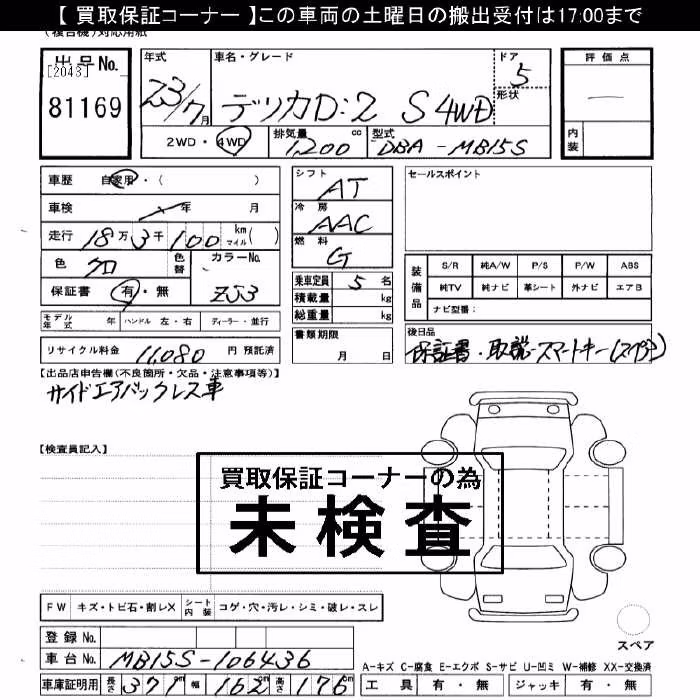 【 買取保証コーナー 】この車両の土曜日の搬出受付は17:00まで
(複合機)対応用紙
出品No.
[2043]
81169
年式
Z3/7月
車名・グレード
デリカD:2 S 4WD
ドア
5
形状
評価点
内装
2WD・4WD
排気量 1,200 cc
型式 DBA-MB15S
車歴 自家用・( )
車検 年 月
走行 18万3千100 km マイル( )
色 クロ 色替
カラーNo. ZJ3
保証書 有・無
シフト AT
冷房 AAC
燃料 G
乗車定員 5 名
積載量 kg
総重量 kg
セールスポイント
装備品
S/R 純A/W P/S P/W ABS
純TV 純ナビ 革シート 外ナビ エアB
ナビ型番:
モデル年式 年 ハンドル 左・右 ディーラー・並行
書類期限 月 日
後日品
保証書・取説・スマートキー(スペア)
リサイクル料金 11,080 円 預託済
【出品店申告欄(不良箇所・欠品・注意事項等)】
サイドエアバックレス車
【検査員記入】
買取保証コーナーの為
未検査
FW キズ・トビ石・割レX シート内装 コゲ・穴・汚レ・シミ・破レ・スレ
スペア
登録No.
車台No. MB15S-106436
A-キズ C-腐食 E-エクボ S-サビ U-凹ミ W-補修 XX-交換済
車庫証明用 長さ 371 cm 幅 162 cm 高さ 176 cm
工具 有・無 ジャッキ 有・無